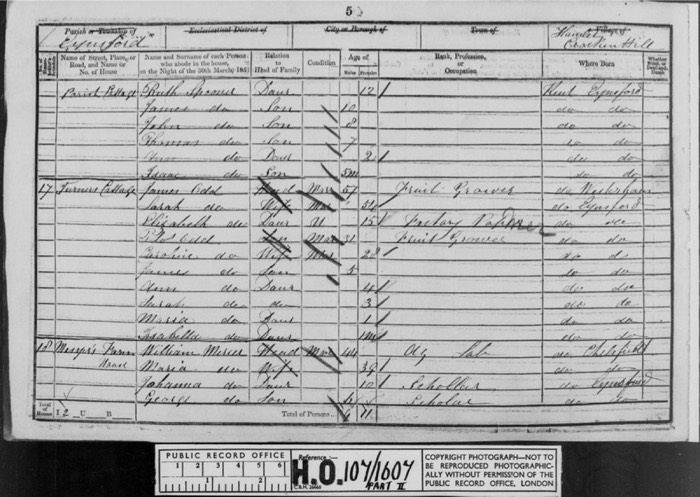 5
Parish or Township of Ecclesiastical District of City or Borough of Town of Village of
Eynsford Hamlet Crocken Hill
Name of Street, Place, or Road, and Name or No. of House
Name and Surname of each Person who abode in the house, on the Night of the 30th March, 1851
Relation to Head of Family
Condition
Age of
Males Females
Rank, Profession, or Occupation
Where Born
Whether Blind, or Deaf-and-Dumb
Cottage Ruth Spooner Daur 12 Kent Eynsford
James do Son 10 do do
John do Son 8 do do
Thomas do Son 7 do do
Ann do Daur 2 do do
Isaac do Son 5m do do
17 Turners Cottage James Odd Head Mar 57 Fruit Grower do
Sarah do Wife Mar do Eynsford
Elizabeth do Daur U 15 Factory do do
Odd Son Mar 31 Fruit Grower do do
Caroline do Wife Mar 28 do do
James do Son 5 do do
Ann do Daur 4 do do
Sarah do do 3 do do
Maria do Daur 1 do do
Isabella do Daur 1m do do
18 Farm House William Mercer Head Mar 44 Ag Lab do Chelsfield
Maria do Wife 39 do
Johanna do Daur 10 Schollar do Eynsford
George do Son Scholar do do
Total of Houses 12 U B Total of Persons 11
PUBLIC RECORD OFFICE
1 2 3 4 5 6
Reference :-
H.O. 107/1607
PART II
COPYRIGHT PHOTOGRAPH—NOT TO
BE REPRODUCED PHOTOGRAPHIC-
ALLY WITHOUT PERMISSION OF THE
PUBLIC RECORD OFFICE, LONDON